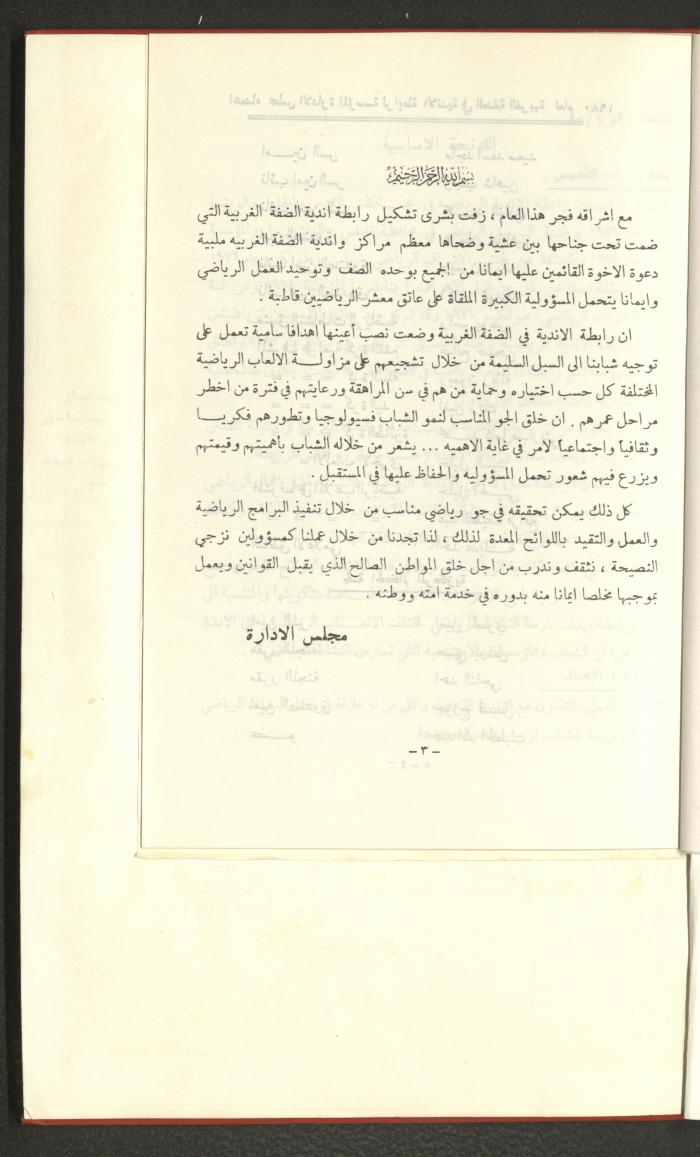 بسم الله الرحمن الرحيم
مع اشراقه فجر هذا العام ، زفت بشرى تشكيل رابطة اندية الضفة الغربية التي
ضمت تحت جناحها بين عشية وضحاها معظم مراكز واندية الضفة الغربيه ملبية
دعوة الاخوة القائمين عليها ايمانا من الجميع بوحده الصف وتوحيد العمل الرياضي
وايمانا يتحمل المسؤولية الكبيرة الملقاة على عاتق معشر الرياضيين قاطبة .
ان رابطة الاندية في الضفة الغربية وضعت نصب أعينها اهدافا سامية تعمل على
توجيه شبابنا الى السبل السليمة من خلال تشجيعهم على مزاولـة الالعاب الرياضية
المختلفة كل حسب اختياره وحماية من هم في سن المراهقة ورعايتهم في فترة من اخطر
مراحل عمرهم . ان خلق الجو المناسب لنمو الشباب فسيولوجيا وتطورهم فكريـا
وثقافياً واجتماعياً لامر في غاية الاهميه ... يشعر من خلاله الشباب بأهميتهم وقيمتهم
ويزرع فيهم شعور تحمل المسؤوليه والحفاظ عليها في المستقبل .
كل ذلك يمكن تحقيقه في جو رياضي مناسب من خلال تنفيذ البرامج الرياضية
والعمل والتقيد باللوائح المعدة لذلك ، لذا تجدنا من خلال عملنا كمسؤولين نزجي
النصيحة ، نثقف وندرب من اجل خلق المواطن الصالح الذي يقبل القوانين ويعمل
بموجبها مخلصا ايمانا منه بدوره في خدمة امته ووطنه .
مجلس الادارة
- ٣ -